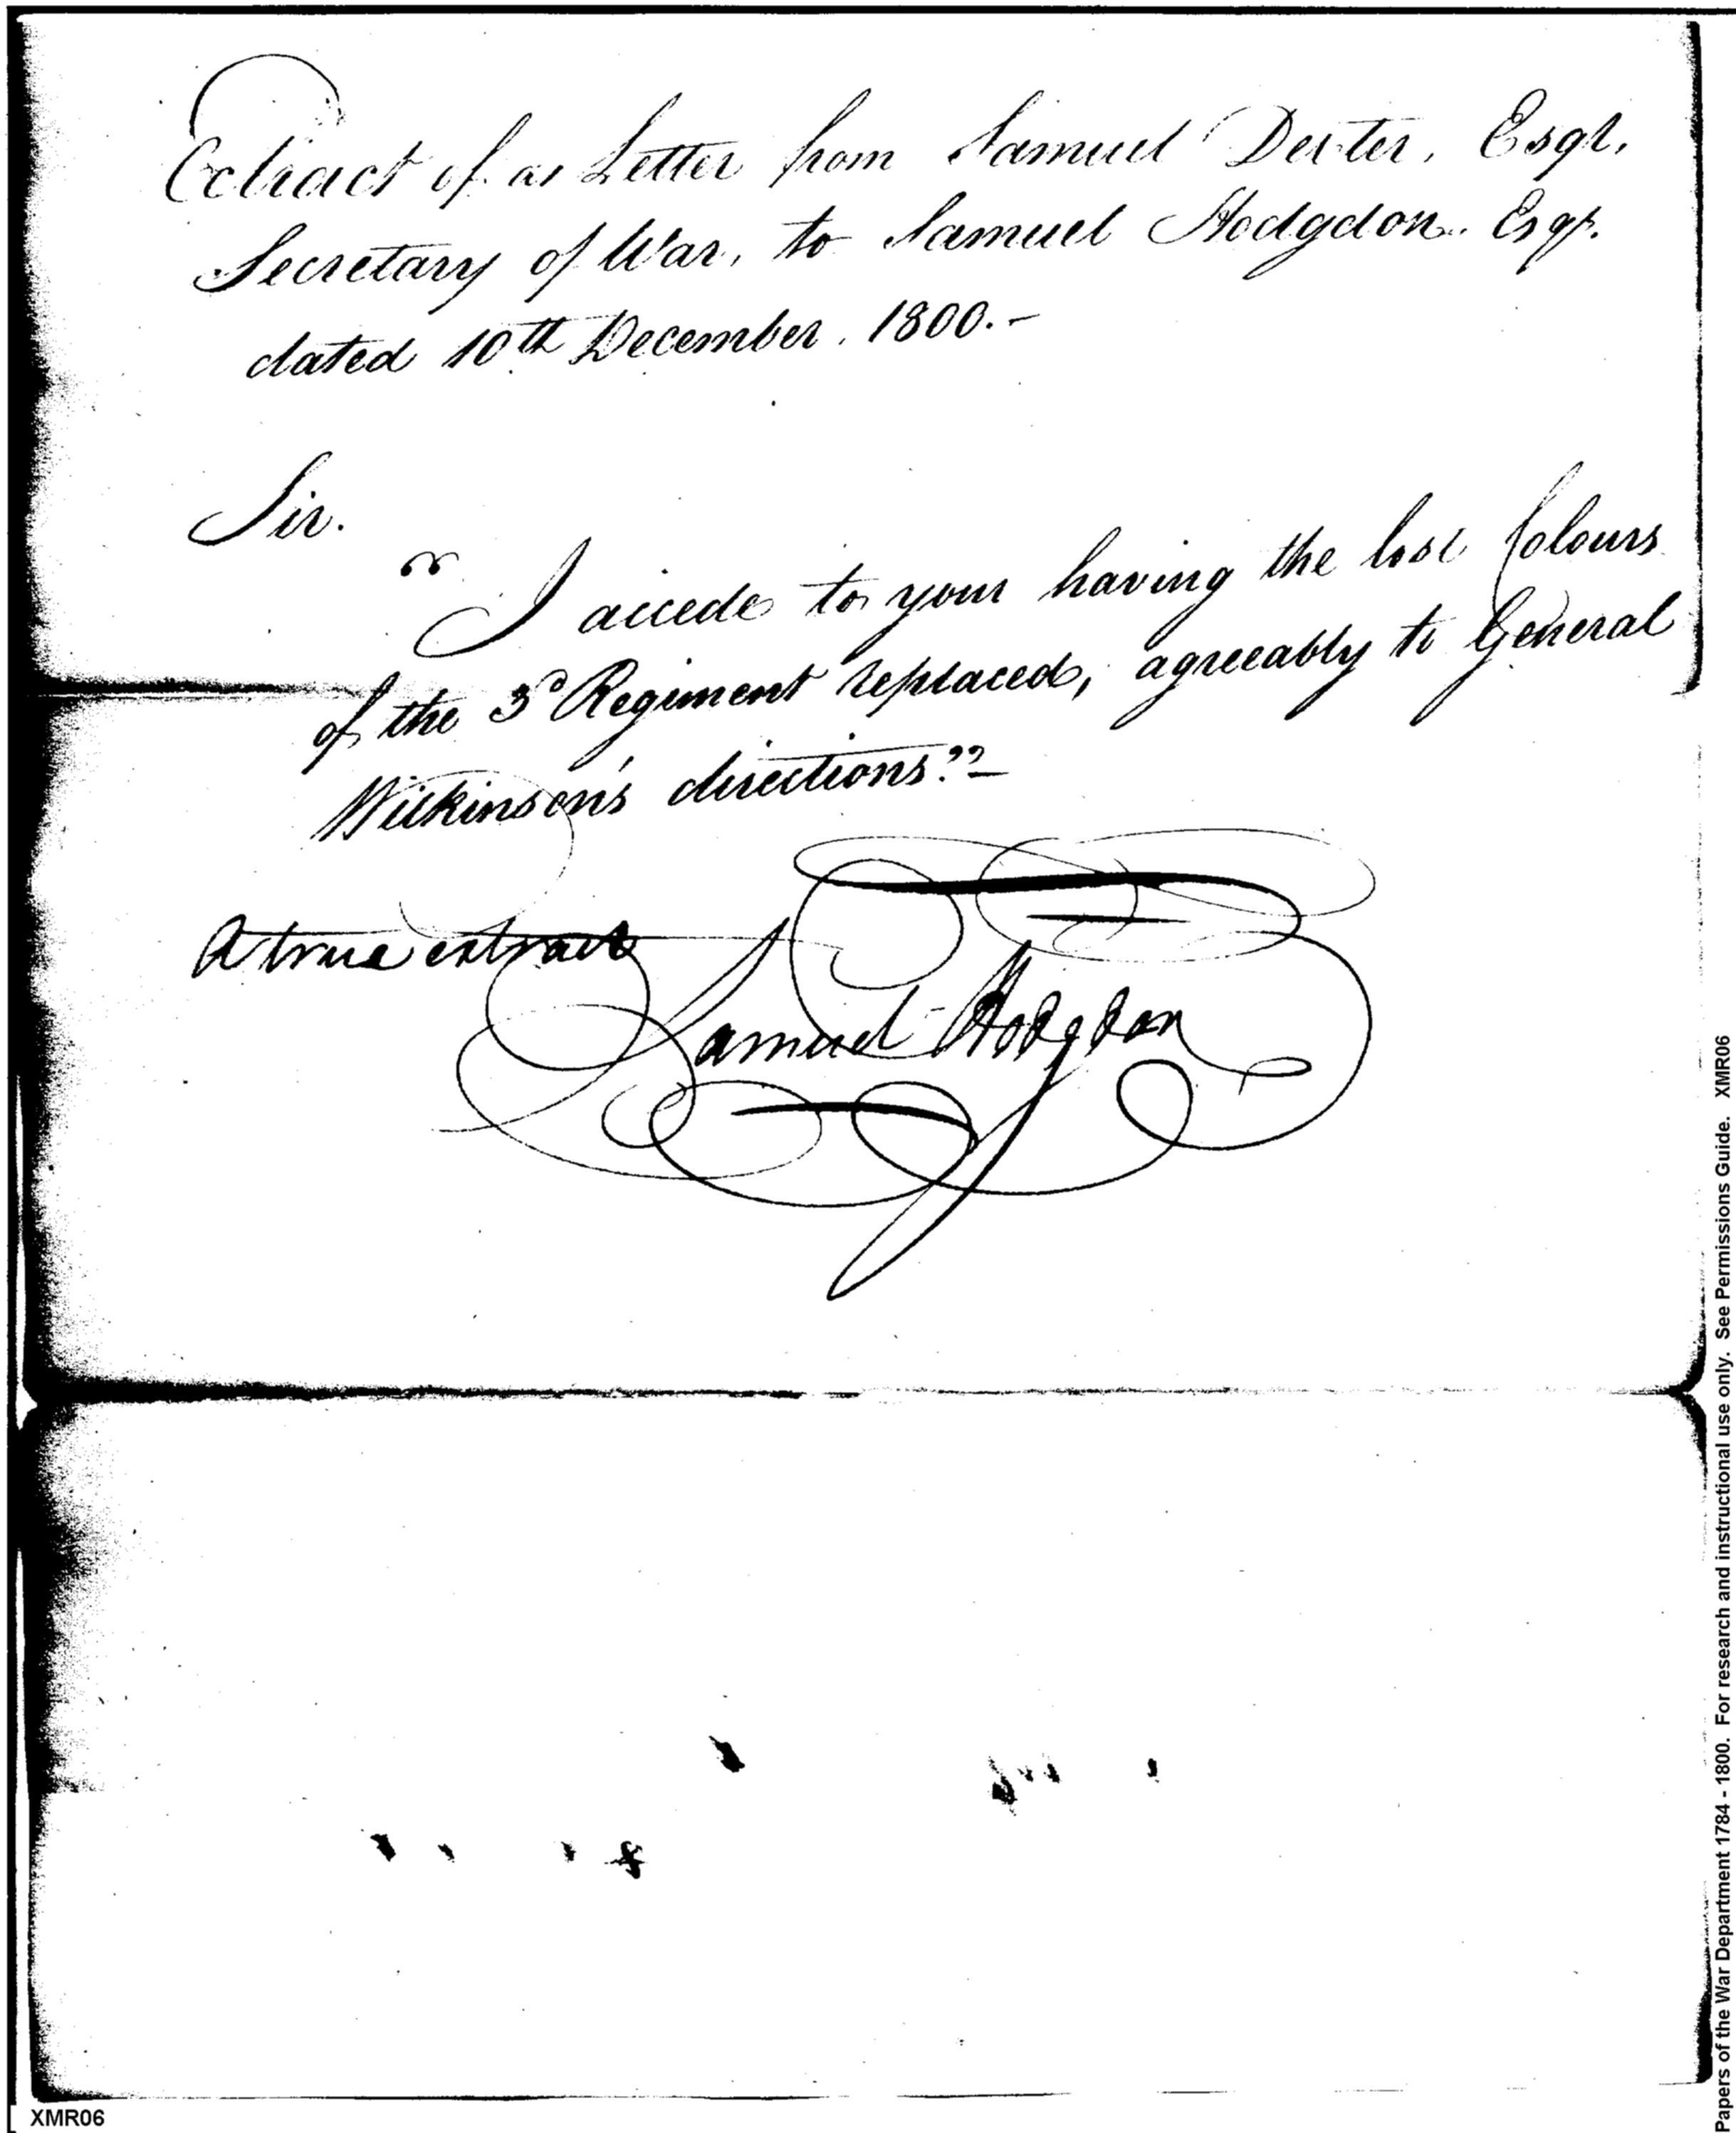 Extract of a Letter from Samuel Dexter, Esqr.
Secretary of War, to Samuel Hodgdon. Esqr.
dated 10th December. 1800.-
Sir.
" I accede to your having the lost Colours
of the 3d Regiment replaced, agreeably to General
Wilkinson's directions."-
A true extract
Samuel Hodgdon
XMR06
Papers of the War Department 1784 - 1800. For research and instructional use only. See Permissions Guide. XMR06